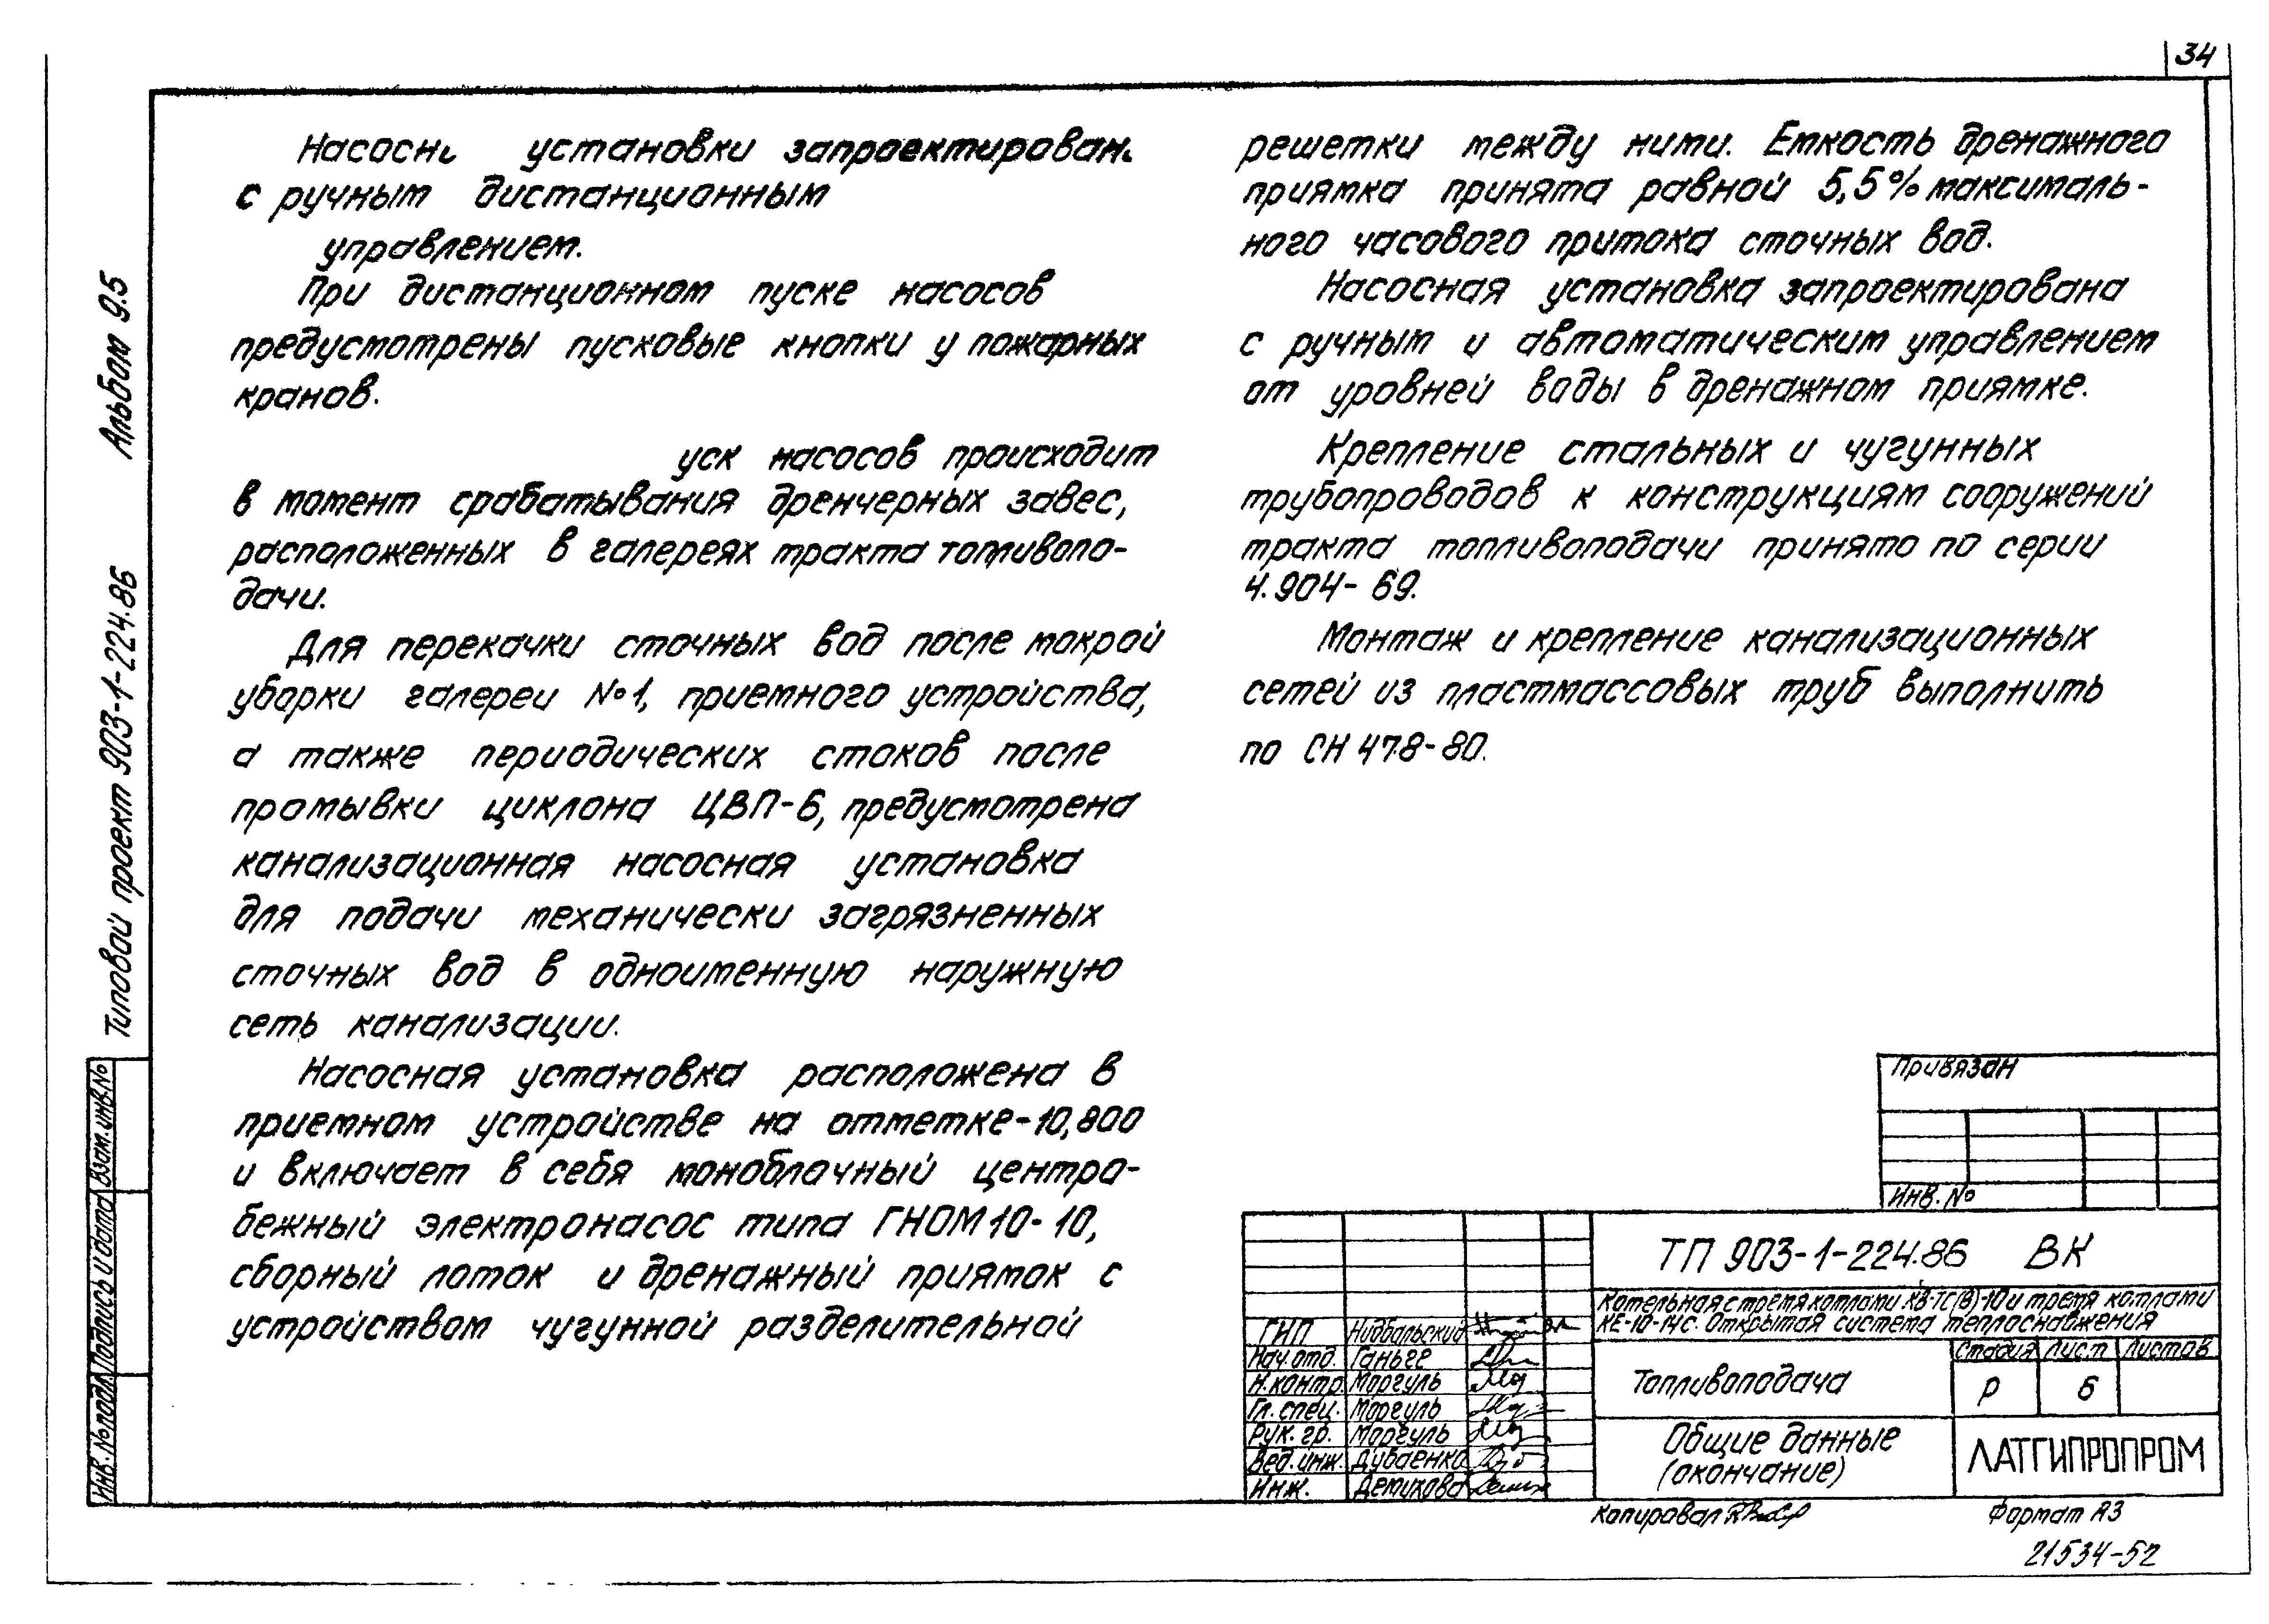 34
Насосн установки запроектирован
с ручным дистанционным
управлением.
При дистанционном пуске насосов
предусмотрены пусковые кнопки у пожарных
кранов.
уск насосов происходит
в момент срабатывания дренчерных завес,
расположенных в галереях тракта топливопо-
дачи.
Для перекачки сточных вод после мокрой
уборки галереи №1, приемного устройства,
а также периодических стоков после
промывки циклона ЦВП-6, предусмотрена
канализационная насосная установка
для подачи механически загрязненных
сточных вод в одноименную наружную
сеть канализации.
Насосная установка расположена в
приемном устройстве на отметке -10,800
и включает в себя моноблочный центро-
бежный электронасос типа ГНОМ 10-10,
сборный лоток и дренажный приямок с
устройством чугунной разделительной
решетки между ними. Емкость дренажного
приямка принята равной 5,5% максималь-
ного часового притока сточных вод.
Насосная установка запроектирована
с ручным и автоматическим управлением
от уровней воды в дренажном приямке.
Крепление стальных и чугунных
трубопроводов к конструкциям сооружений
тракта топливоподачи принято по серии
4.904-69.
Монтаж и крепление канализационных
сетей из пластмассовых труб выполнить
по СН 478-80.
Типовой проект 903-1-224.86 Альбом 9.5
Инв. № подл. Подпись и дата Взам. инв. №
Привязан
Инв. №
ТП 903-1-224.86 ВК
Котельная с тремя котлами КВ-ТС(В)-10 и тремя котлами
КЕ-10-14с. Открытая система теплоснабжения
ГИП Нидбальский
Нач. отд. Ганьге
Н. контр. Моргуль
Гл. спец. Моргуль
Рук. гр. Моргуль
Вед. инж. Дубаенко
Инж. Демикова
Топливоподача
Стадия Лист Листов
Р 6
Общие данные
(окончание)
ЛАТГИПРОПРОМ
Копировал
Формат А3
21534-52